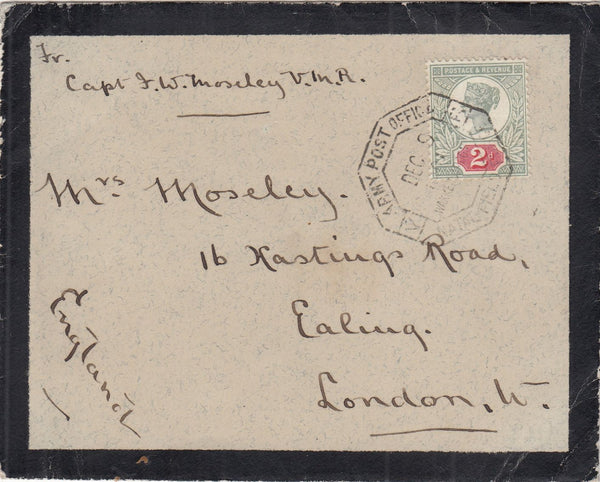 Fr.
Capt F. W. Moseley V.M.R.
POSTAGE & REVENUE
2d
ARMY POST OFFICE
DEC 9
NATAL FIELD
Mrs Moseley.
16 Hastings Road,
Ealing.
London, W.
England